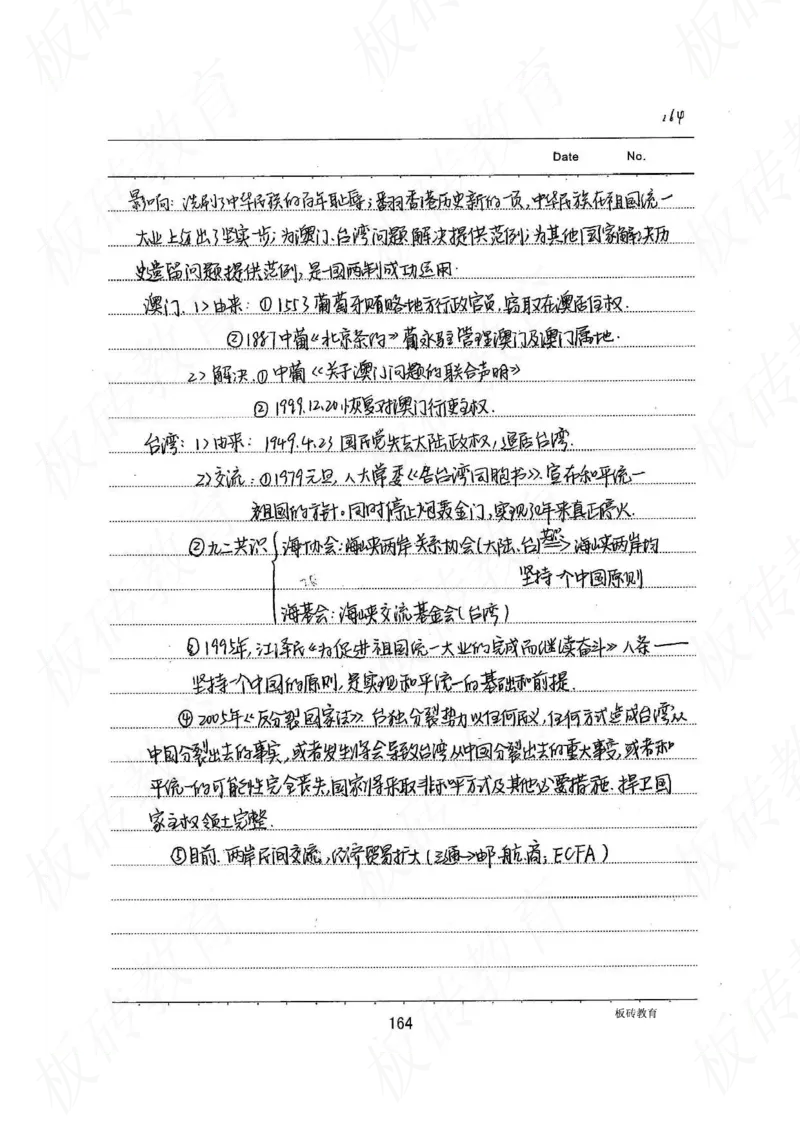 164
Date No.
影响：洗刷了中华民族的百年耻辱；翻羽香港历史新的一页，中华民族在祖国统一
大业上仅出了坚实一步；为澳门、台湾问题解决提供范例；为其他国家解决历
史遗留问题提供范例，是一国两制成功运用.
澳门、1>由来：①1553葡萄牙贿赂地方行政官员，窃取在澳居住权.
②1887中葡《北京条约》葡永驻管理澳门及澳门属地.
2>解决.①中葡《关于澳门问题的联合声明》
②1999.12.20恢复对澳门行使主权.
台湾：1>由来：1949.4.23国民党失去大陆政权，退居台湾.
2>交流：①1979元旦，人大常委《告台湾同胞书》.宣布和平统一
祖国的方针。同时停止炮轰金门，实现30年来真正停火.
②九二共识 海协会：海峡两岸关系协会(大陆、台) => 海峡两岸均
坚持一个中国原则
海基会：海峡交流基金会(台湾)
③1995年，江泽民《为促进祖国统一大业的完成而继续奋斗》八条——
坚持一个中国的原则，是实现和平统一的基础和前提.
④2005年《反分裂国家法》.台独分裂势力以任何名义，任何方式造成台湾从
中国分裂出去的事实，或者发生将会导致台湾从中国分裂出去的重大事变，或者和
平统一的可能性完全丧失，国家得采取非和平方式及其他必要措施.捍卫国
家主权领土完整.
⑤目前.两岸民间交流，经济贸易扩大(三通→邮.航.商；ECFA)
164
板砖教育